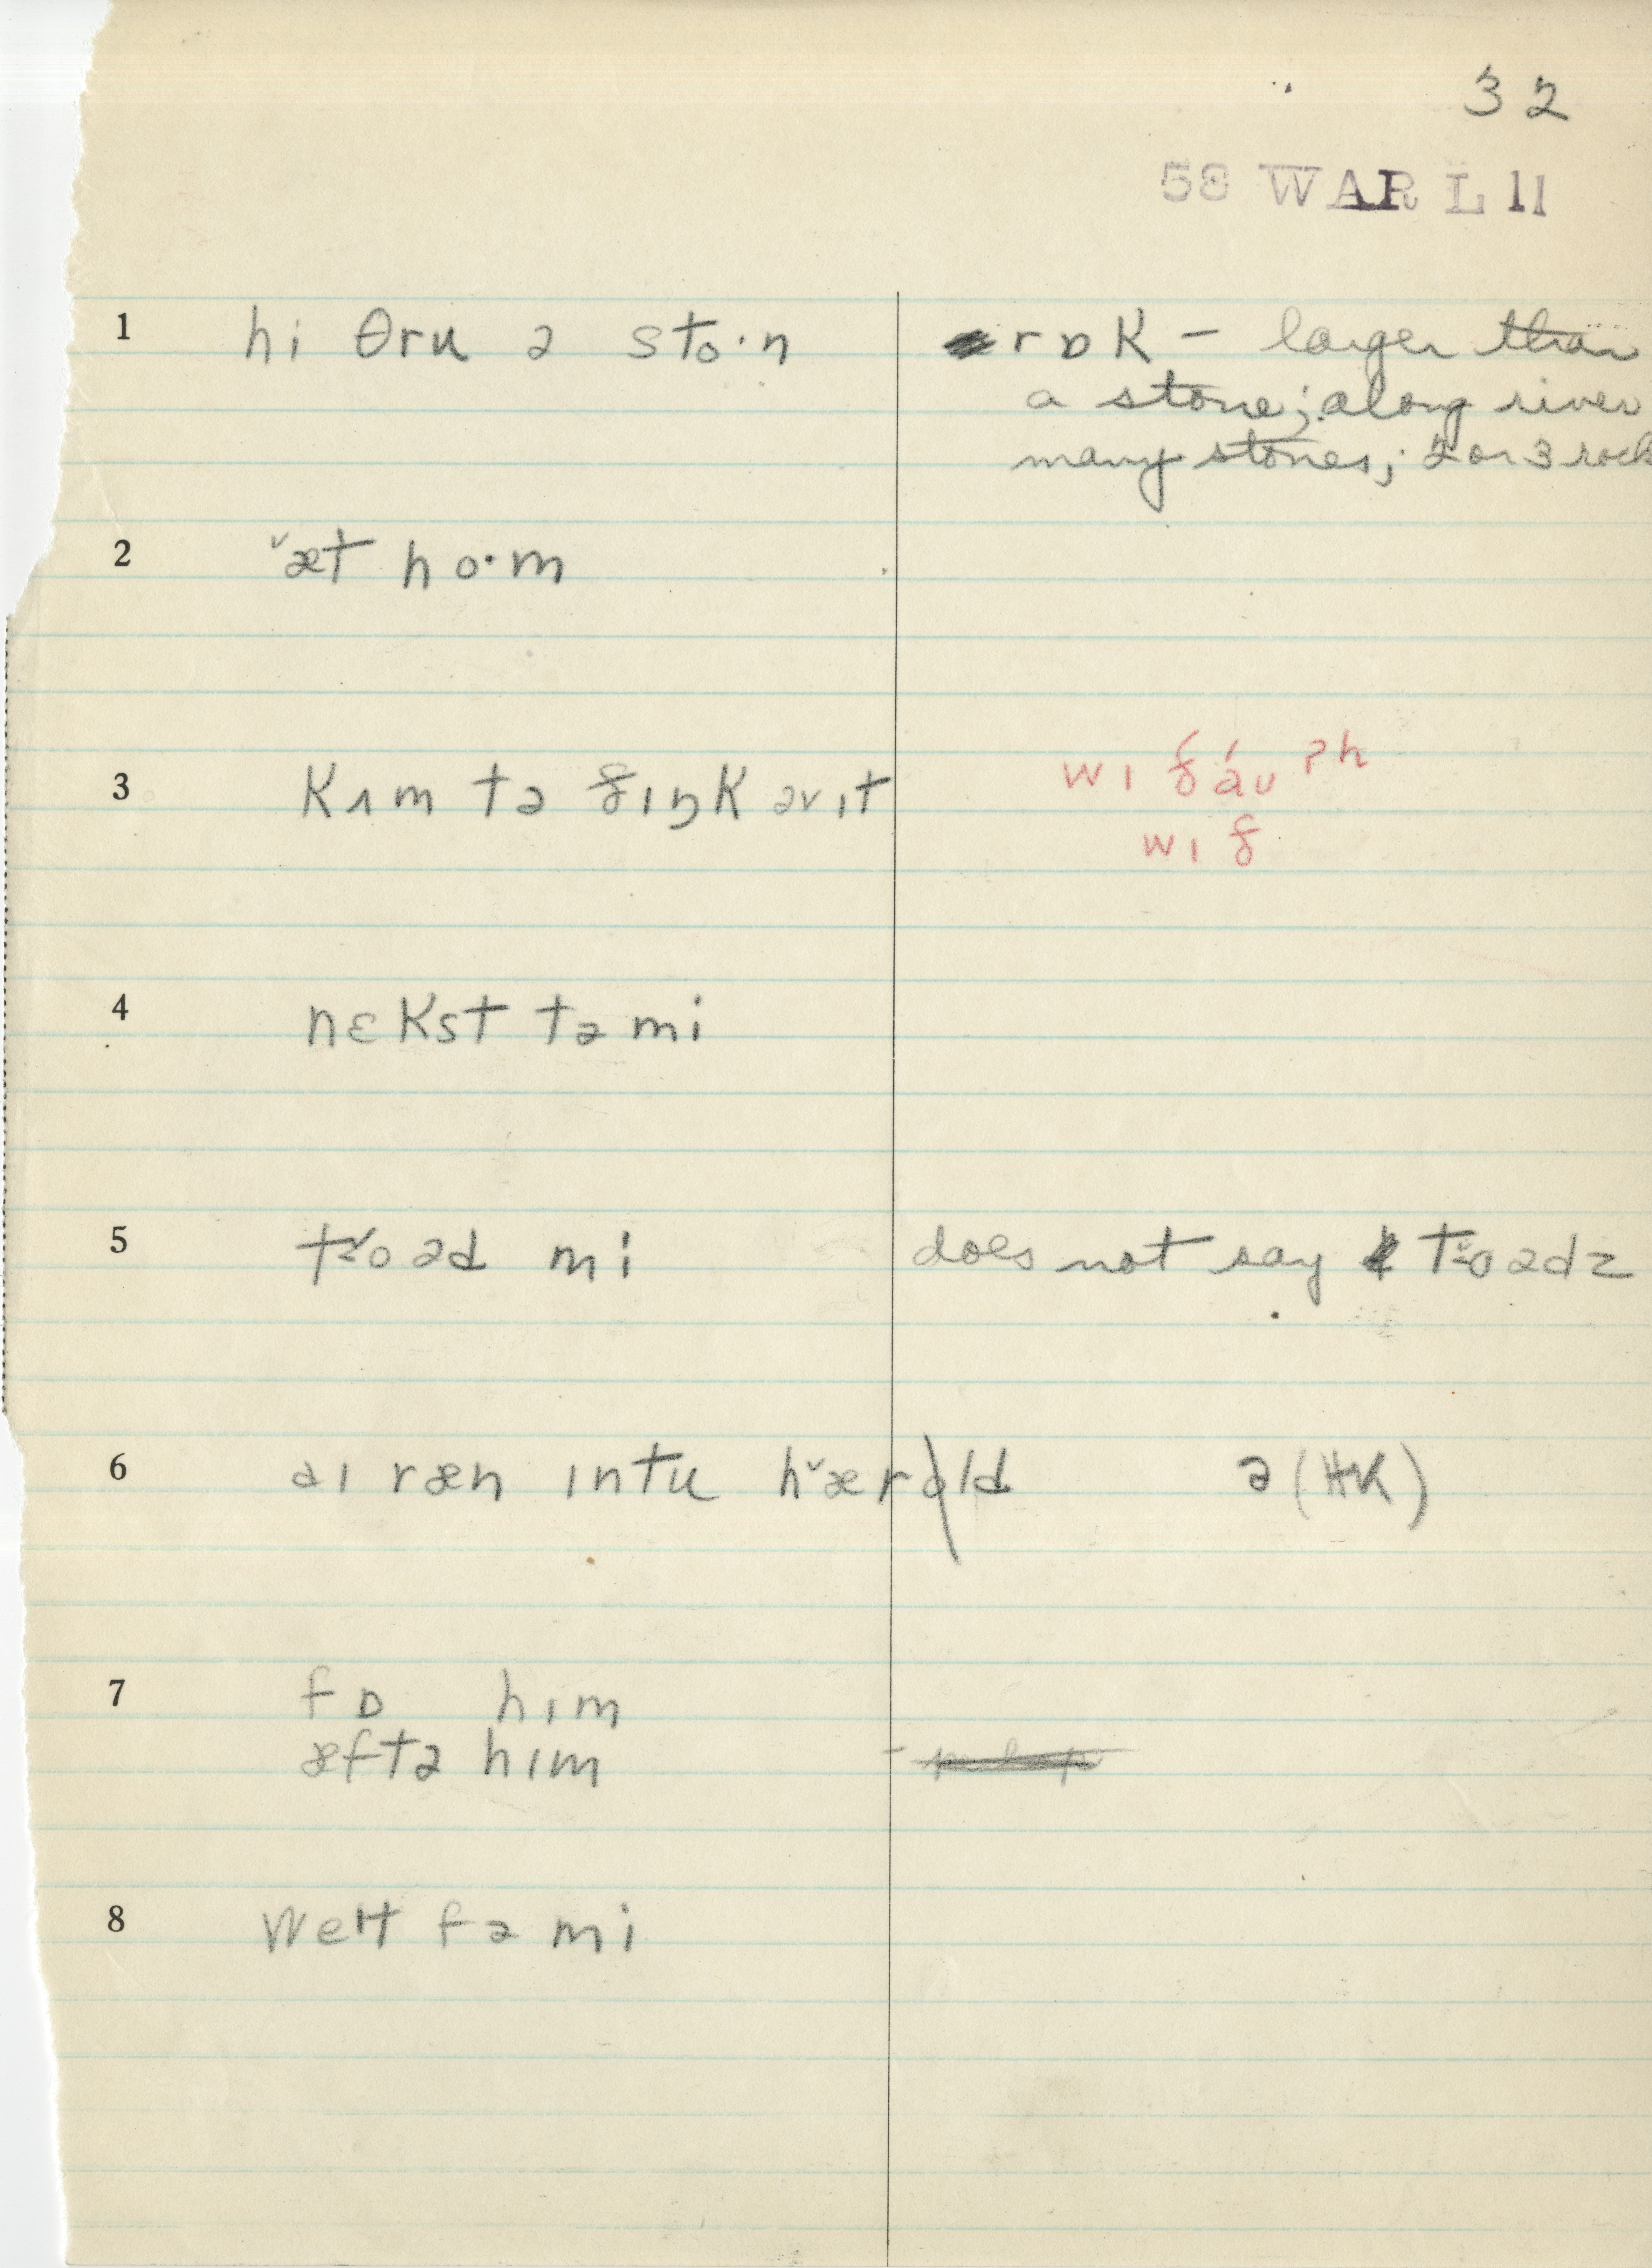 32
58 WAR L 11
1 hi θru ə sto·n rɒk – larger than
a stone; along river
many stones; 2 or 3 rock
2 ˇæt ho·m
3 kʌm tə θɪŋk əvɪt wɪ ð áu ʔh
wɪ ð
4 nɛkst tə mi
5 to əd mi does not say to ədz
6 aɪ ræn ɪntu hˇærəld ə (HK)
7 fɒ hɪm
æftə hɪm
8 weɪt fə mi